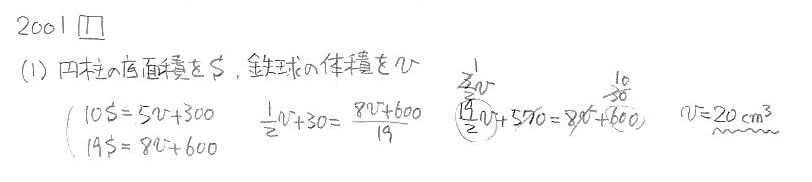 2001 Ⅲ
(1) 円柱の底面積をS, 鉄球の体積をv
10S=5v+300
19S=8v+600
1/2 v+30=(8v+600)/19
19/2 v+570=8v+600
3/2 v
1
30
10
v=20cm³